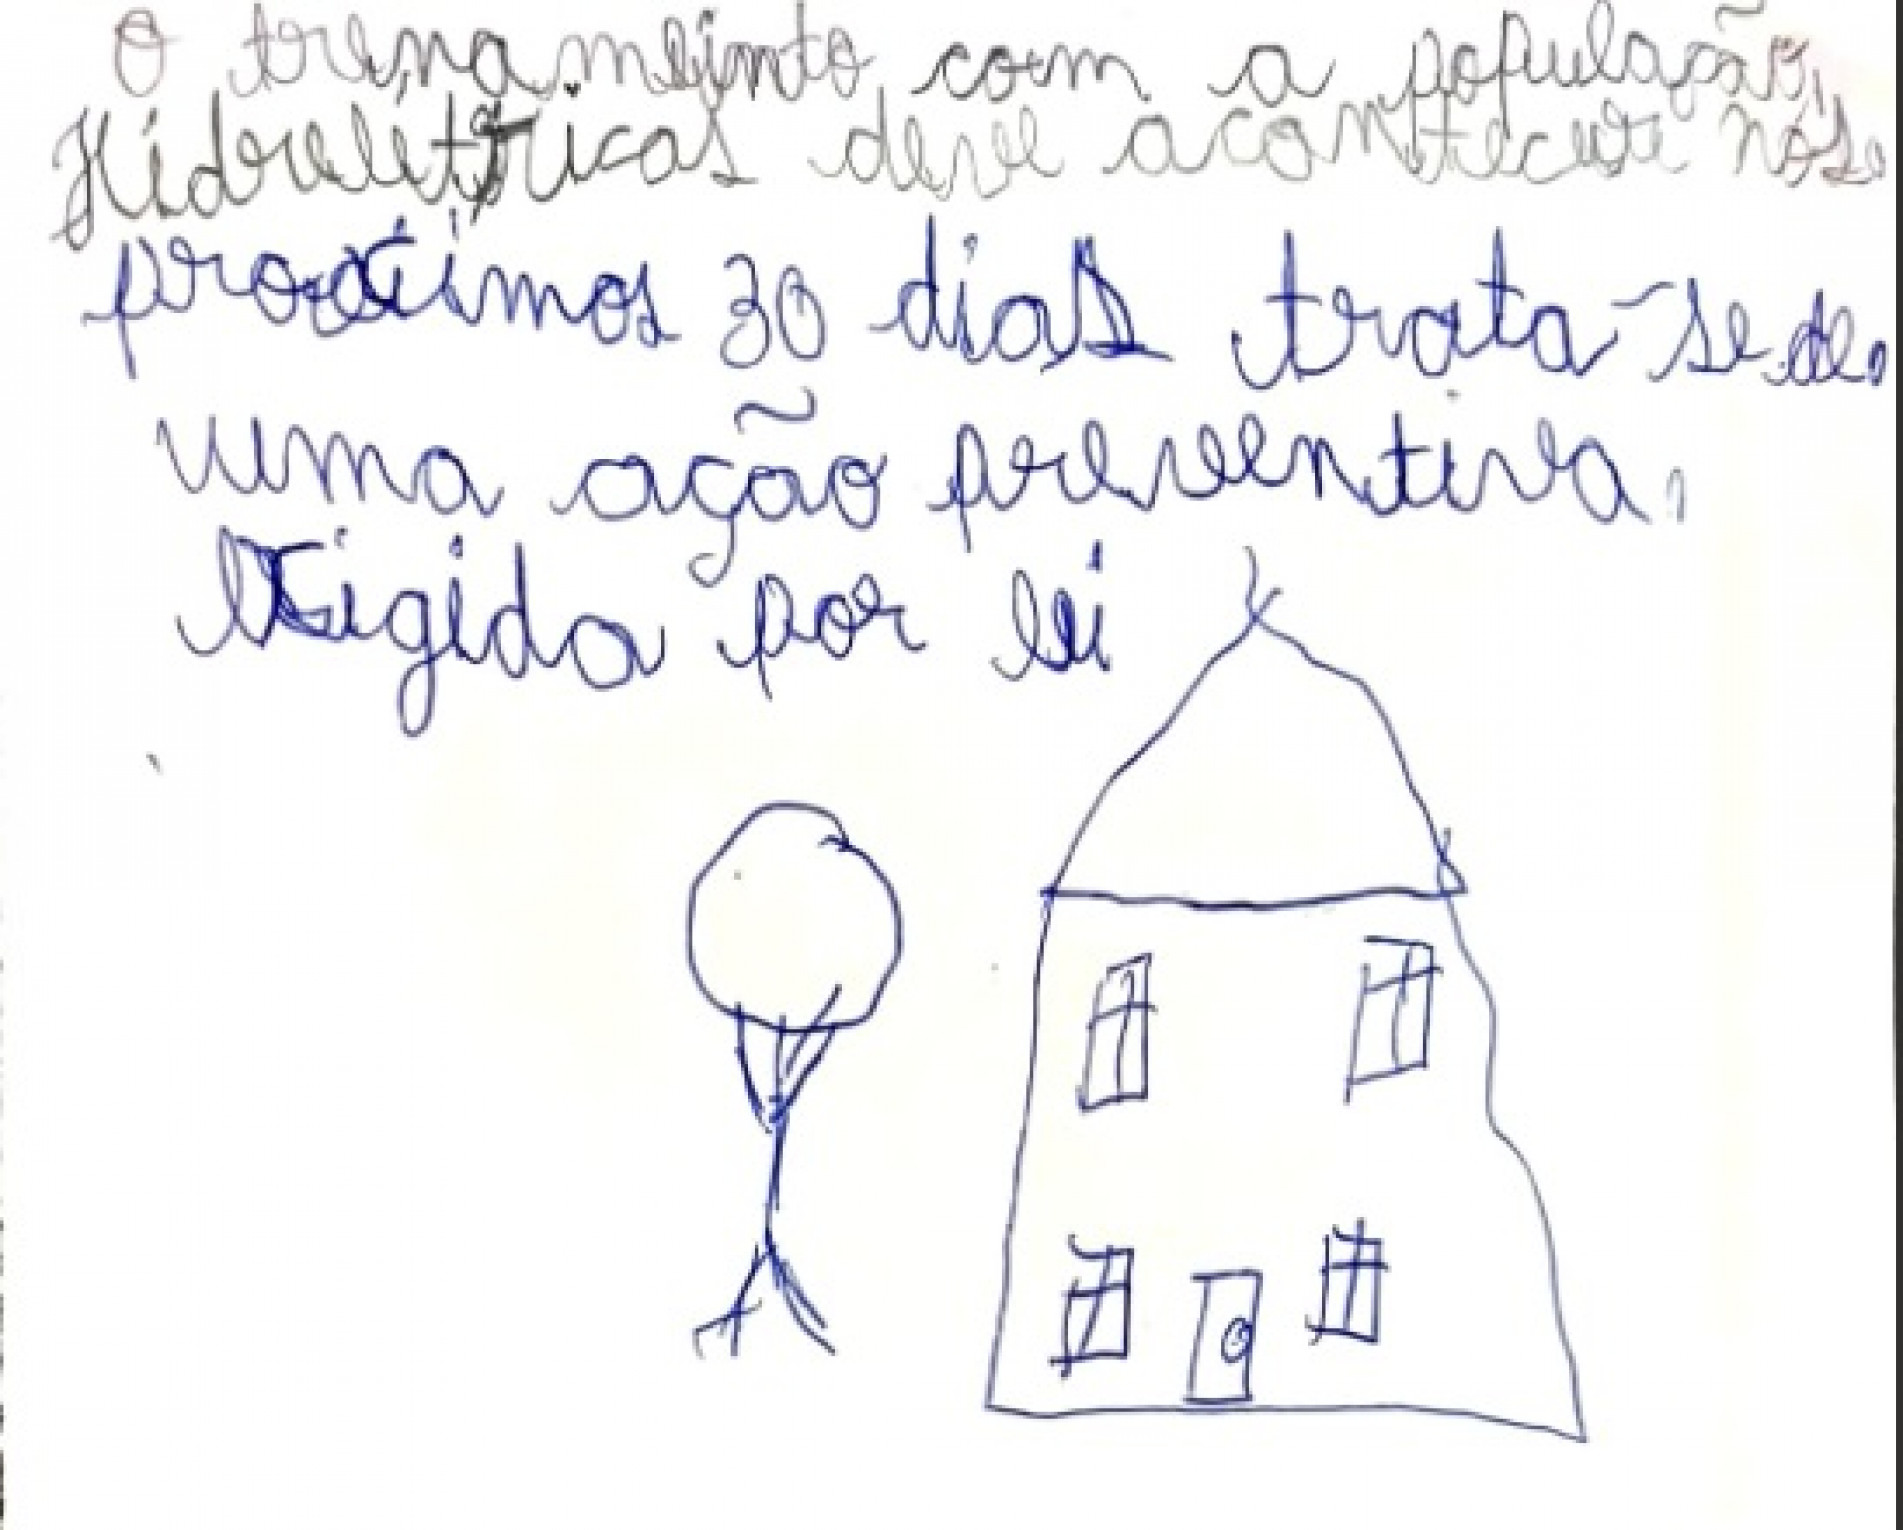 O trenameinto com a população,
Hidreletricas deve acontecer nos
proximos 30 dias trata-se de
uma ação preventiva,
Exigida por lei